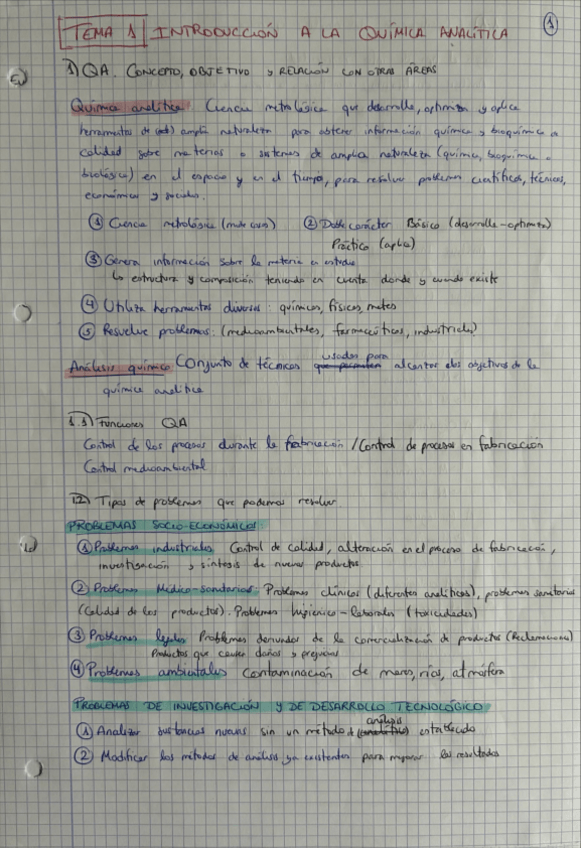 TEMA 1 INTRODUCCIÓN A LA QUÍMICA ANALÍTICA 1
1) QA. CONCEPTO, OBJETIVO y RELACIÓN CON OTRAS ÁREAS
Química analítica: Ciencia metrológica que desarrolla, optimiza y aplica
herramientas de amplia naturaleza para obtener información química y bioquímica de
calidad sobre materias o sistemas de amplia naturaleza (química, bioquímica o
biológica) en el espacio y en el tiempo, para resolver problemas científicos, técnicos,
económicos y sociales.
① Ciencia metrológica ② Doble carácter Básico (desarrolla-optimiza)
Práctico (aplica)
③ Genera información sobre la materia en estudio
La estructura y composición teniendo en cuenta donde y cuando existe
④ Utiliza herramientas diversas: químicas, físicas, mates
⑤ Resuelve problemas: (medioambientales, farmacéuticos, industriales)
Análisis químico Conjunto de técnicas usadas para alcanzar los objetivos de la
química analítica
1.1) Funciones QA
Control de los procesos durante la fabricación / Control de procesos en fabricación
Control medioambiental
1.2) Tipos de problemas que podemos resolver
PROBLEMAS SOCIO-ECONÓMICOS:
① Problemas industriales Control de calidad, alteración en el proceso de fabricación,
investigación y síntesis de nuevos productos
② Problemas Médico-sanitarios: Problemas clínicos (diferentes analíticas), problemas sanitarios
(Calidad de los productos). Problemas higiénico-laborales (toxicidades)
③ Problemas legales Problemas derivados de la comercialización de productos (Reclamaciones)
Productos que causen daños y prejuicios
④ Problemas ambientales Contaminación de mares, ríos, atmósfera
PROBLEMAS DE INVESTIGACIÓN Y DE DESARROLLO TECNOLÓGICO
① Analizar sustancias nuevas sin un método análisis establecido
② Modificar los métodos de análisis ya existentes para mejorar los resultados